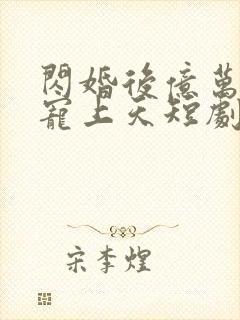 閃婚後億萬
寵上天短劇
宋李煌